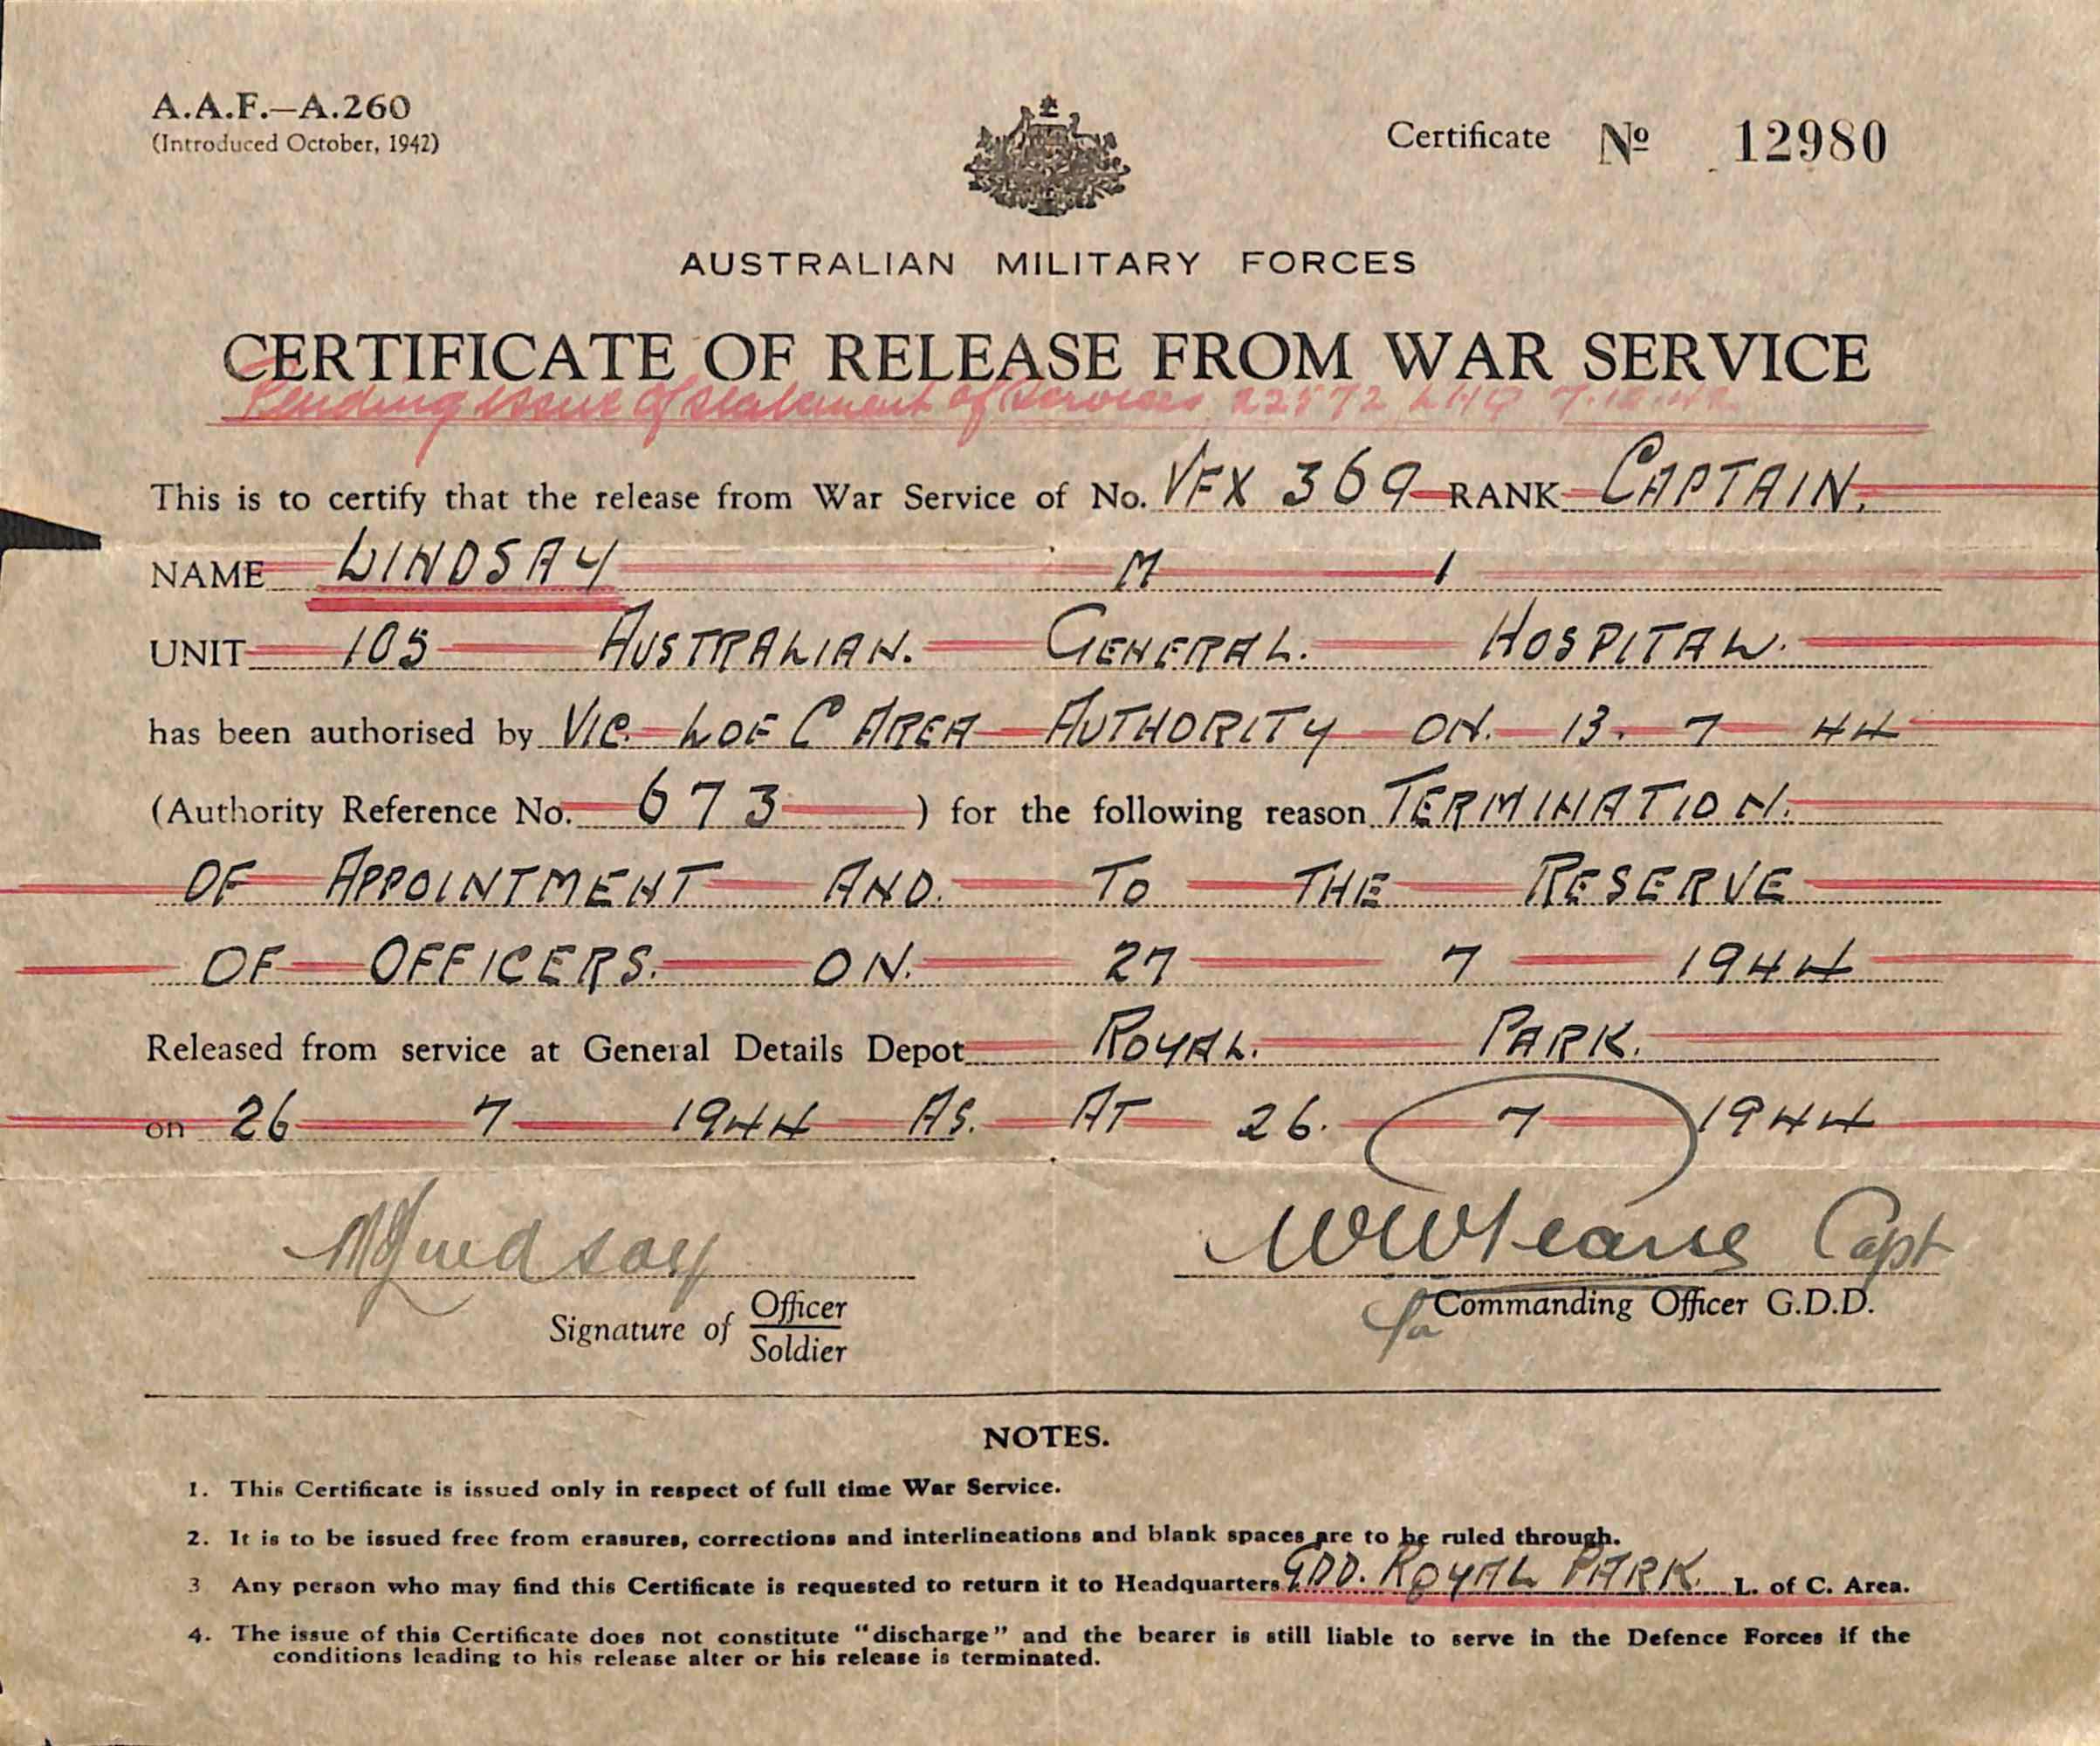 A.A.F.—A.260
(Introduced October, 1942)
Certificate Nº 12980
AUSTRALIAN MILITARY FORCES
CERTIFICATE OF RELEASE FROM WAR SERVICE
Pending issue of Statement of Services 22572 LHQ 7.12.42
This is to certify that the release from War Service of No. VFX 369 RANK CAPTAIN.
NAME LINDSAY M I
UNIT 105 AUSTRALIAN. GENERAL. HOSPITAL.
has been authorised by VIC. L OF C AREA AUTHORITY ON. 13. 7 44
(Authority Reference No. 673 ) for the following reason TERMINATION.
OF APPOINTMENT AND. TO THE RESERVE
OF OFFICERS. ON. 27 7 1944
Released from service at General Details Depot ROYAL. PARK.
on 26 7 1944 AS. AT 26. 7 1944
M Lindsay
Capt
Signature of Officer
Soldier
for Commanding Officer G.D.D.
NOTES.
1. This Certificate is issued only in respect of full time War Service.
2. It is to be issued free from erasures, corrections and interlineations and blank spaces are to be ruled through.
3 Any person who may find this Certificate is requested to return it to Headquarters GDD. ROYAL PARK. L. of C. Area.
4. The issue of this Certificate does not constitute "discharge" and the bearer is still liable to serve in the Defence Forces if the
conditions leading to his release alter or his release is terminated.